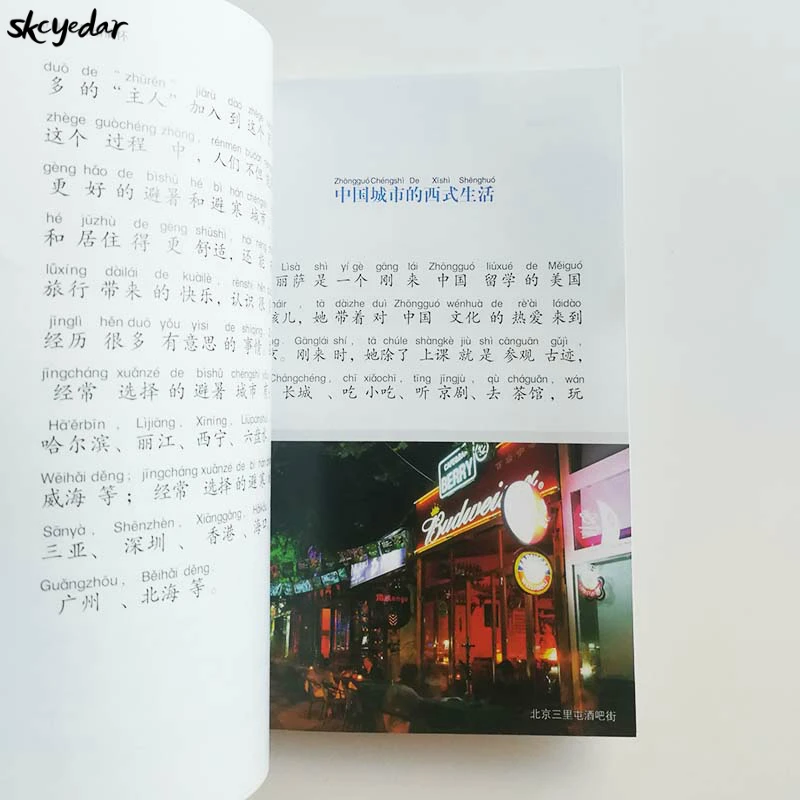 skcyedar
怀
duō de "zhǔrén" jiārù dào zhège
多 的 “主人” 加入 到 这个
zhège guòchéng zhōng, rénmen bùdàn
这个 过程 中，人们 不但
gèng hǎo de bìshǔ hé bì hán chéngshì
更 好 的 避暑 和 避寒 城市
hé jūzhù de gèng shūshì, hái néng
和 居住 得 更 舒适，还 能
lǚxíng dàilái de kuàilè, rènshi hěn
旅行 带来 的 快乐，认识 很
jīnglì hěn duō yǒu yìsi de shìqing
经历 很多 有意思 的 事情
jīngcháng xuǎnzé de bìshǔ chéngshì
经常 选择 的 避暑 城市
Hā'ěrbīn, Lìjiāng, Xīníng, Liùpánshuǐ
哈尔滨、丽江、西宁、六盘水
Wēihǎi děng; jīngcháng xuǎnzé de bì hán
威海 等；经常 选择 的 避寒
Sānyà, Shēnzhèn, Xiānggǎng, Hǎikǒu
三亚、深圳、香港、海口
Guǎngzhōu, Běihǎi děng.
广州、北海 等。
Zhōngguó Chéngshì De Xīshì Shēnghuó
中国城市的西式生活
Lìsà shì yí gè gāng lái Zhōngguó liúxué de Měiguó
丽萨 是 一个 刚 来 中国 留学 的 美国
háir, tā dàizhe duì Zhōngguó wénhuà de rè'ài láidào
孩儿，她 带着 对 中国 文化 的 热爱 来到
Gānglái shí, tā chúle shàngkè jiù shì cānguān gǔjì,
京。刚来 时，她 除了 上课 就是 参观 古迹，
Chángchéng, chī xiǎochī, tīng jīngjù, qù cháguǎn, wán
长城、吃 小吃、听 京剧、去 茶馆，玩
BERRY
Budweiser
北京三里屯酒吧街